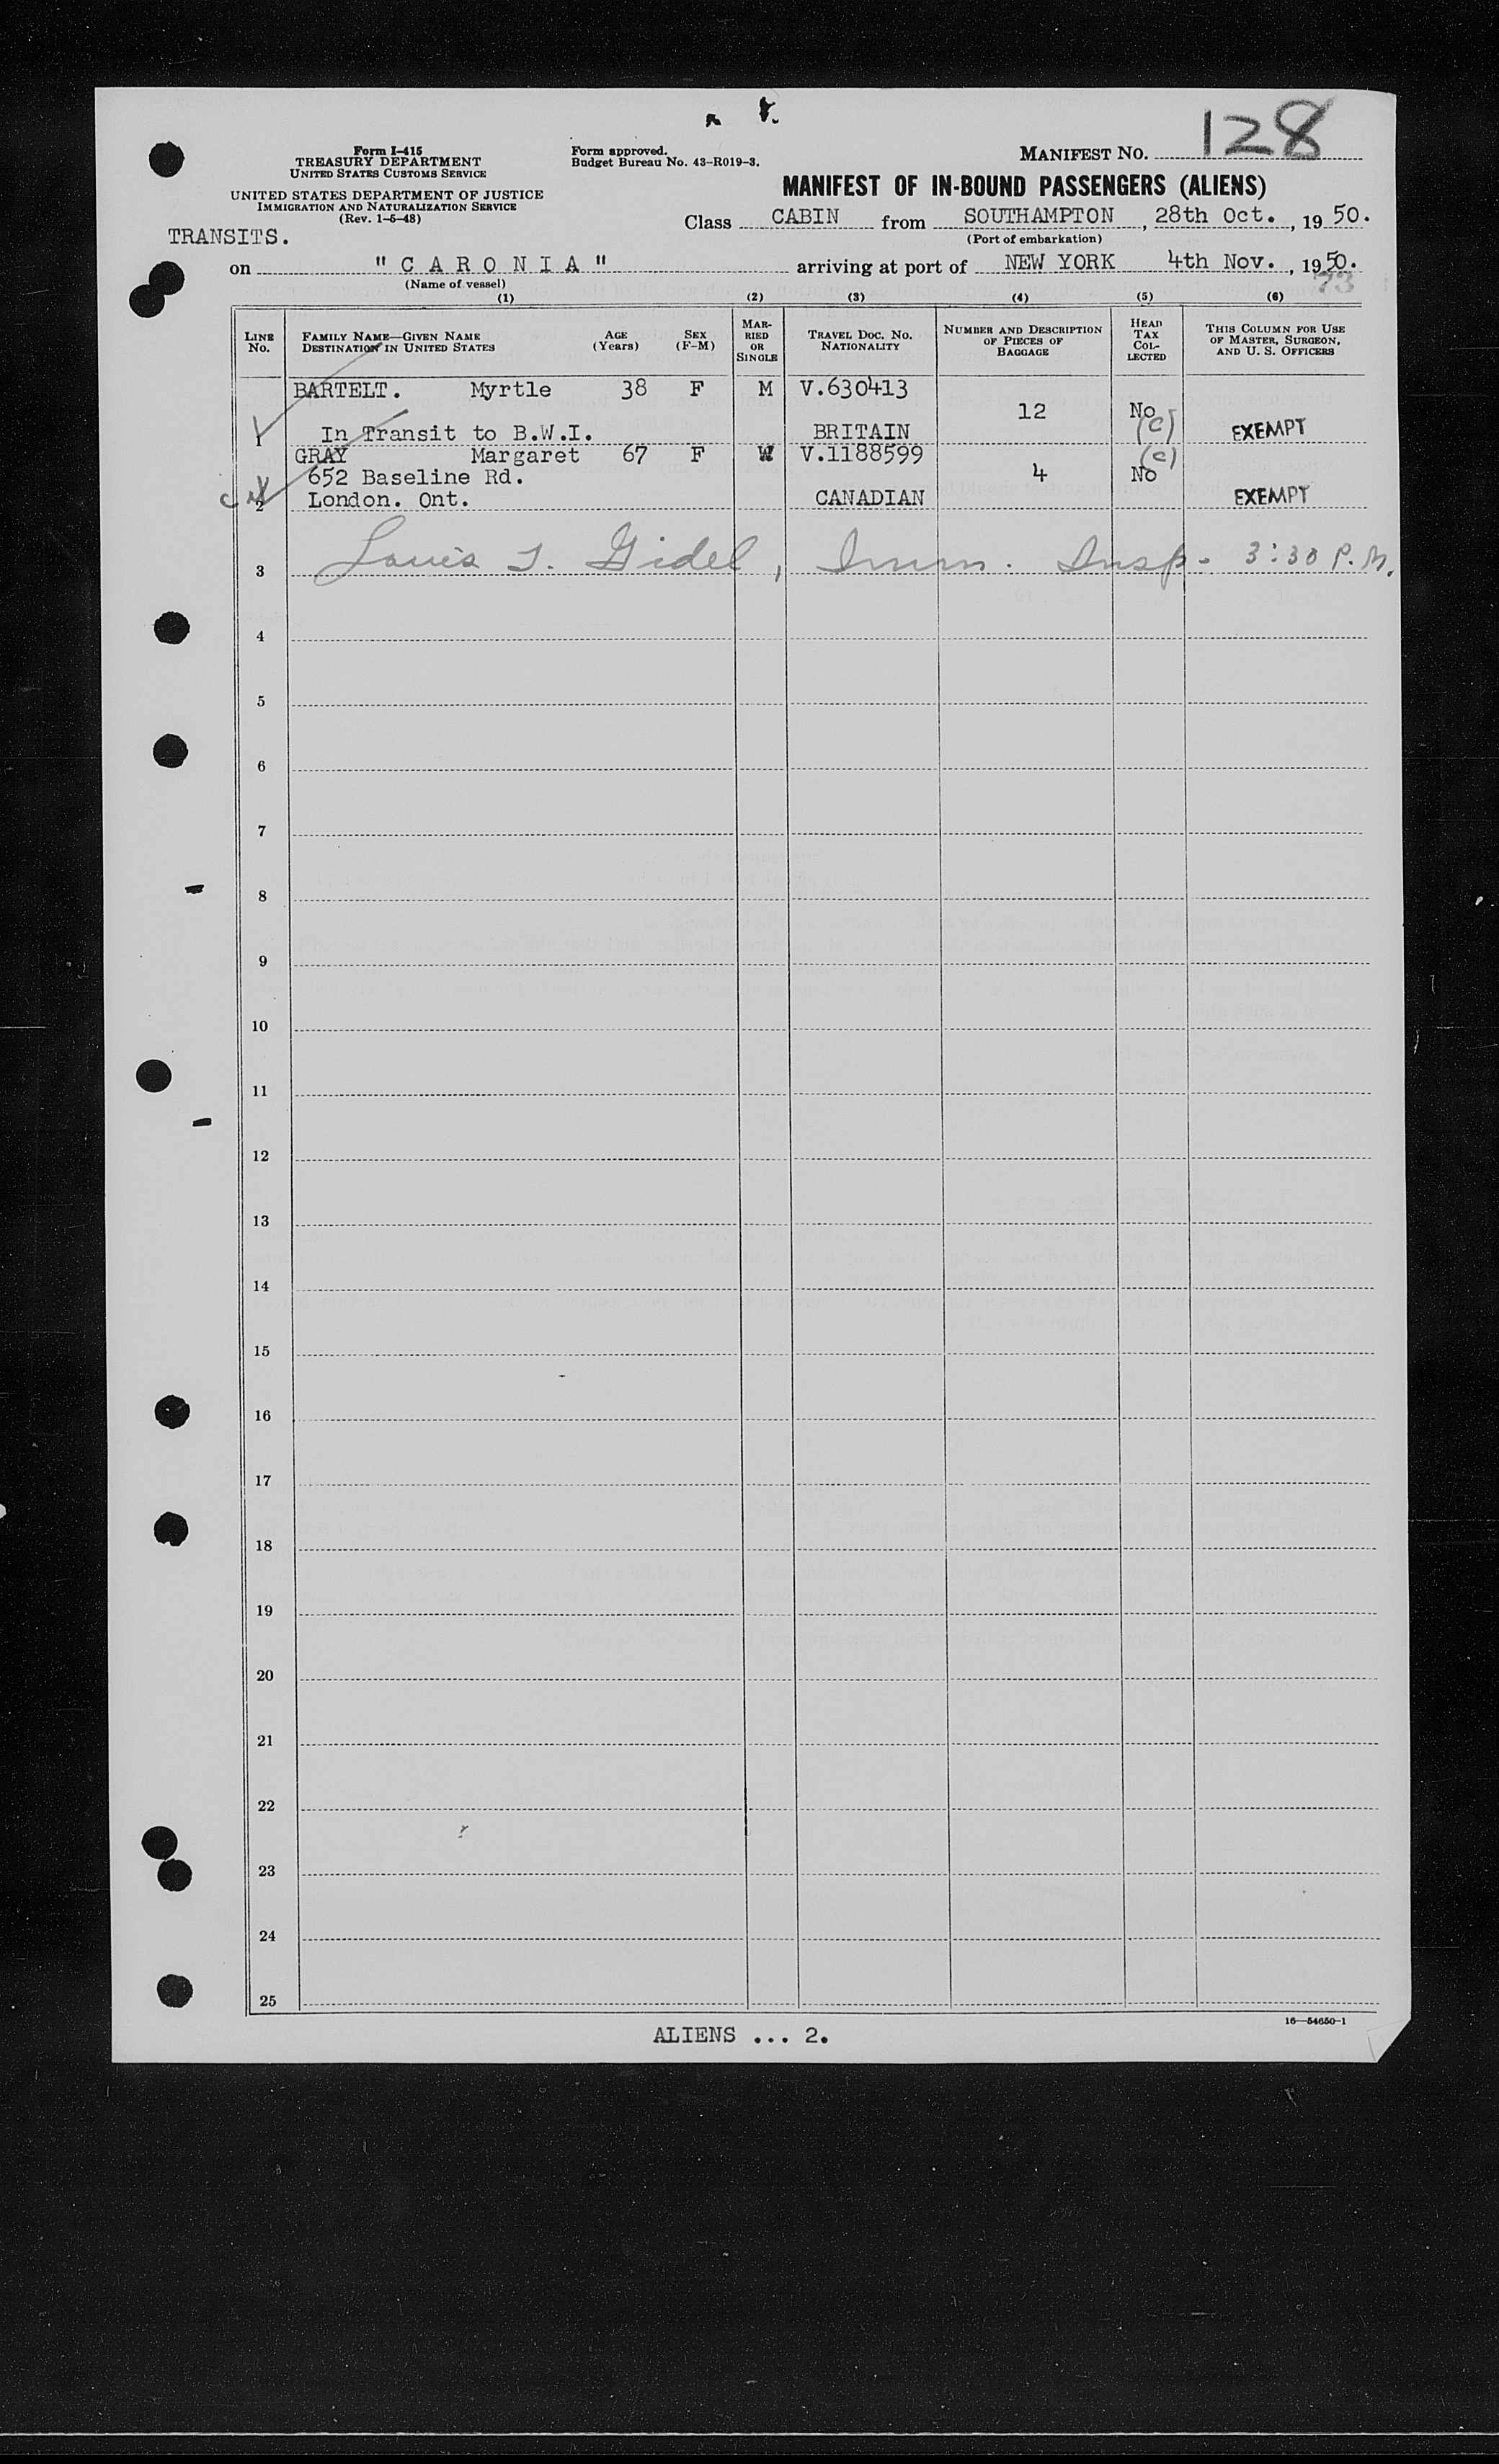 128
Form I-415
TREASURY DEPARTMENT
UNITED STATES CUSTOMS SERVICE
UNITED STATES DEPARTMENT OF JUSTICE
IMMIGRATION AND NATURALIZATION SERVICE
(Rev. 1-6-48)
Form approved.
Budget Bureau No. 43-R019-3.
MANIFEST NO.
MANIFEST OF IN-BOUND PASSENGERS (ALIENS)
Class CABIN from SOUTHAMPTON, 28th Oct., 1950.
(Port of embarkation)
TRANSITS.
on "CARONIA" arriving at port of NEW YORK 4th Nov., 1950.
(Name of vessel)
73
(1) (2) (3) (4) (5) (6)
LINE NO. FAMILY NAME—GIVEN NAME DESTINATION IN UNITED STATES AGE (Years) SEX (F-M) MARRIED OR SINGLE TRAVEL DOC. NO. NATIONALITY NUMBER AND DESCRIPTION OF PIECES OF BAGGAGE HEAD TAX COLLECTED THIS COLUMN FOR USE OF MASTER, SURGEON, AND U. S. OFFICERS
BARTELT. Myrtle 38 F M V.630413
12 No
1 In Transit to B.W.I. BRITAIN (c) EXEMPT
GRAY Margaret 67 F W V.1188599 (c)
652 Baseline Rd. 4 No
2 London. Ont. CANADIAN EXEMPT
3 Louis T. Gidel, Imm. Insp. 3:30 P.M.
4
5
6
7
8
9
10
11
12
13
14
15
16
17
18
19
20
21
22
23
24
25
16—54650-1
ALIENS ... 2.